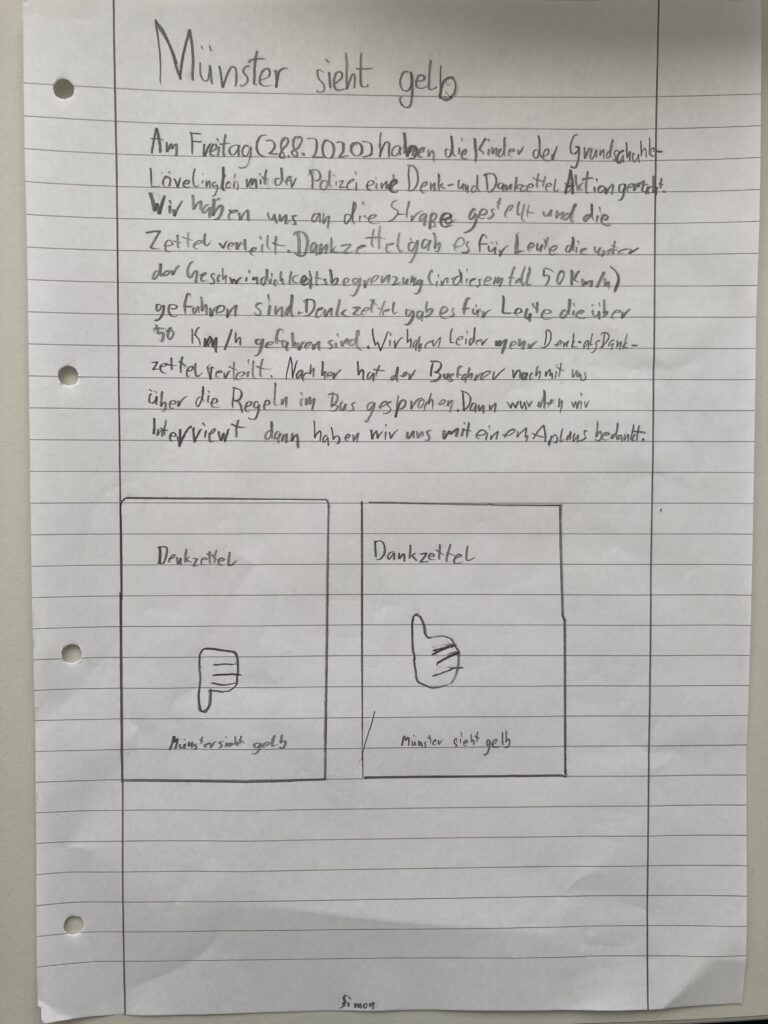 Münster sieht gelb
Am Freitag (28.8.2020) haben die Kinder der Grundschuhle
Lövelingloh mit der Polizei eine Denk- und Dankzettel Aktion
Wir haben uns an die Straße gestellt und die
Zettel verteilt. Dankzettel gab es für Leute die unter
der Geschwindichkeitsbegrenzung (in diesem fall 50 Km/h)
gefahren sind. Denkzettel gab es für Leute die über
50 Km/h gefahren sind. Wir haben leider mehr Denk- als Dank-
zettel verteilt. Nachher hat der Busfahrer noch mit uns
über die Regeln im Bus gesprohen. Dann wurden wir
Interviewt dann haben wir uns mit einen Aplaus bedankt.
Denkzettel
Dankzettel
Münster sieht gelb
Münster sieht gelb
Simon